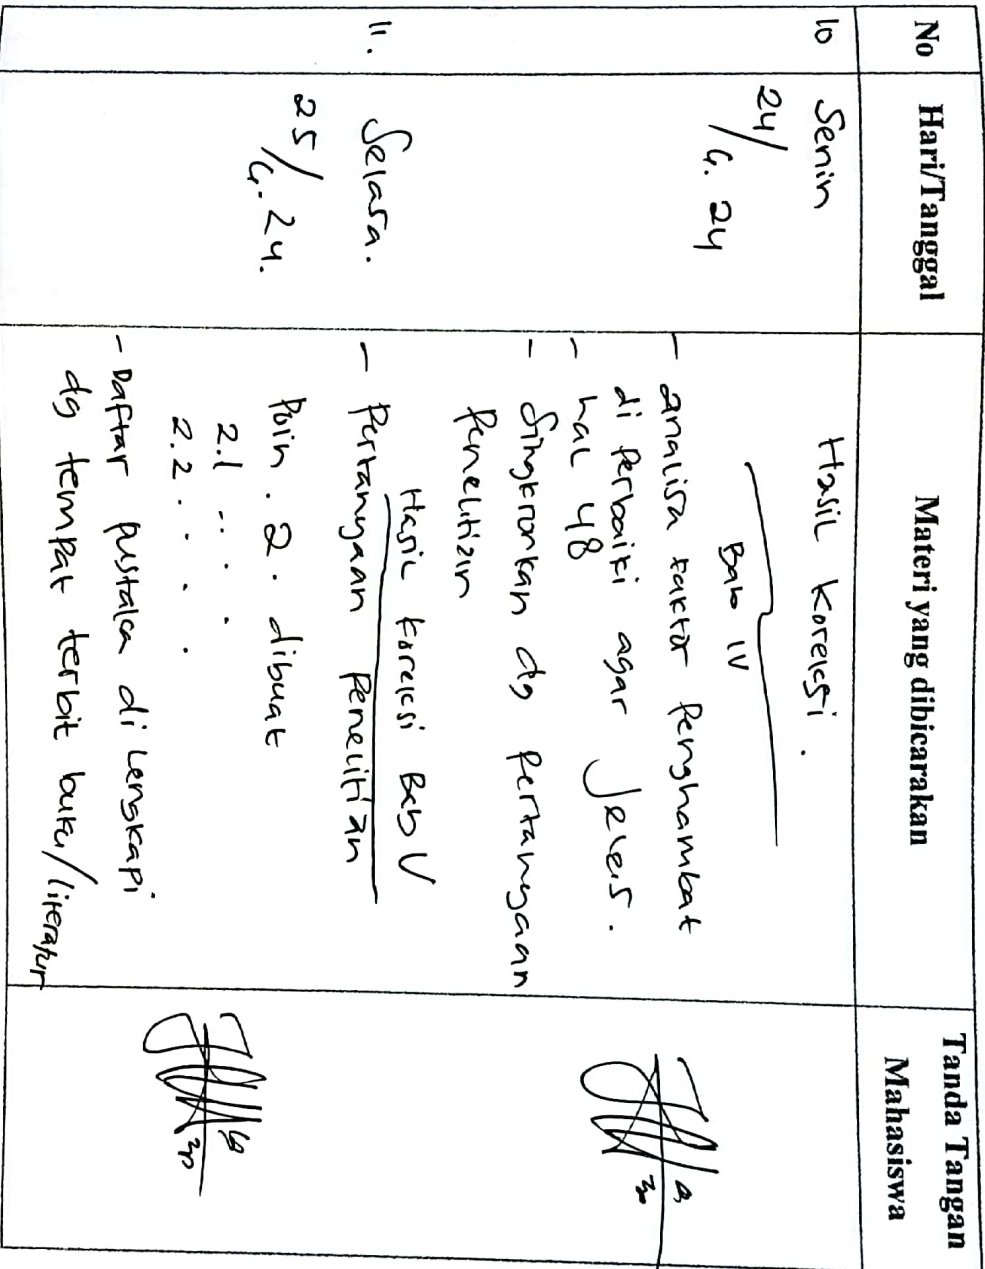 No Hari/Tanggal Materi yang dibicarakan Tanda Tangan Mahasiswa
10 Senin
24/6. 24
Hasil Koreksi.
Bab IV
- analisa faktor Penghambat
di Perbaiki agar Jelas.
- hal 48
- Singkronkan dg Pertanyaan
Penelitian
11. Selasa.
25/6. 24.
Hasil Koreksi Bab V
- Pertanyaan Penelitian
Poin . 2 . dibuat
2.1 ...
2.2 ....
- Daftar pustaka di Lengkapi
dg tempat terbit buku/literatur